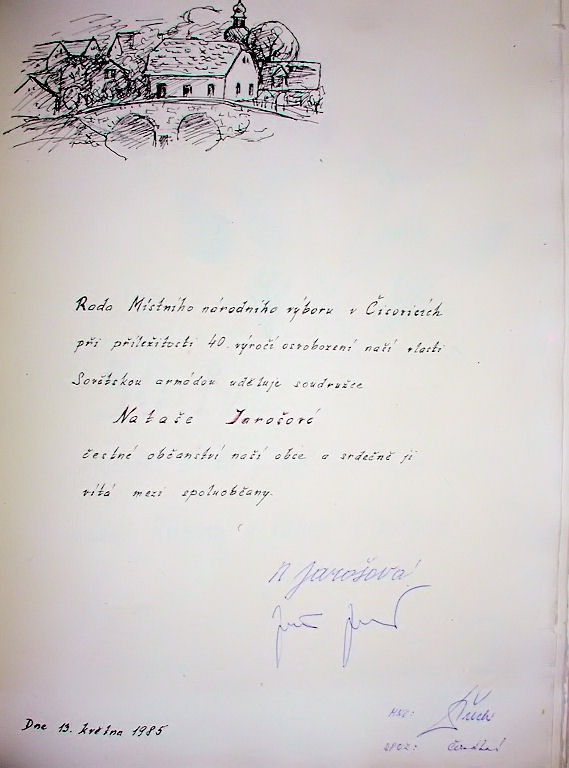 Rada Místního národního výboru v Čisovicích
při příležitosti 40. výročí osvobození naší vlasti
Sovětskou armádou uděluje soudružce
Nataše Jarošové
čestné občanství naší obce a srdečně ji
vítá mezi spoluobčany.
N Jarošová
Dne 13. května 1985
MNV:
SPOZ: